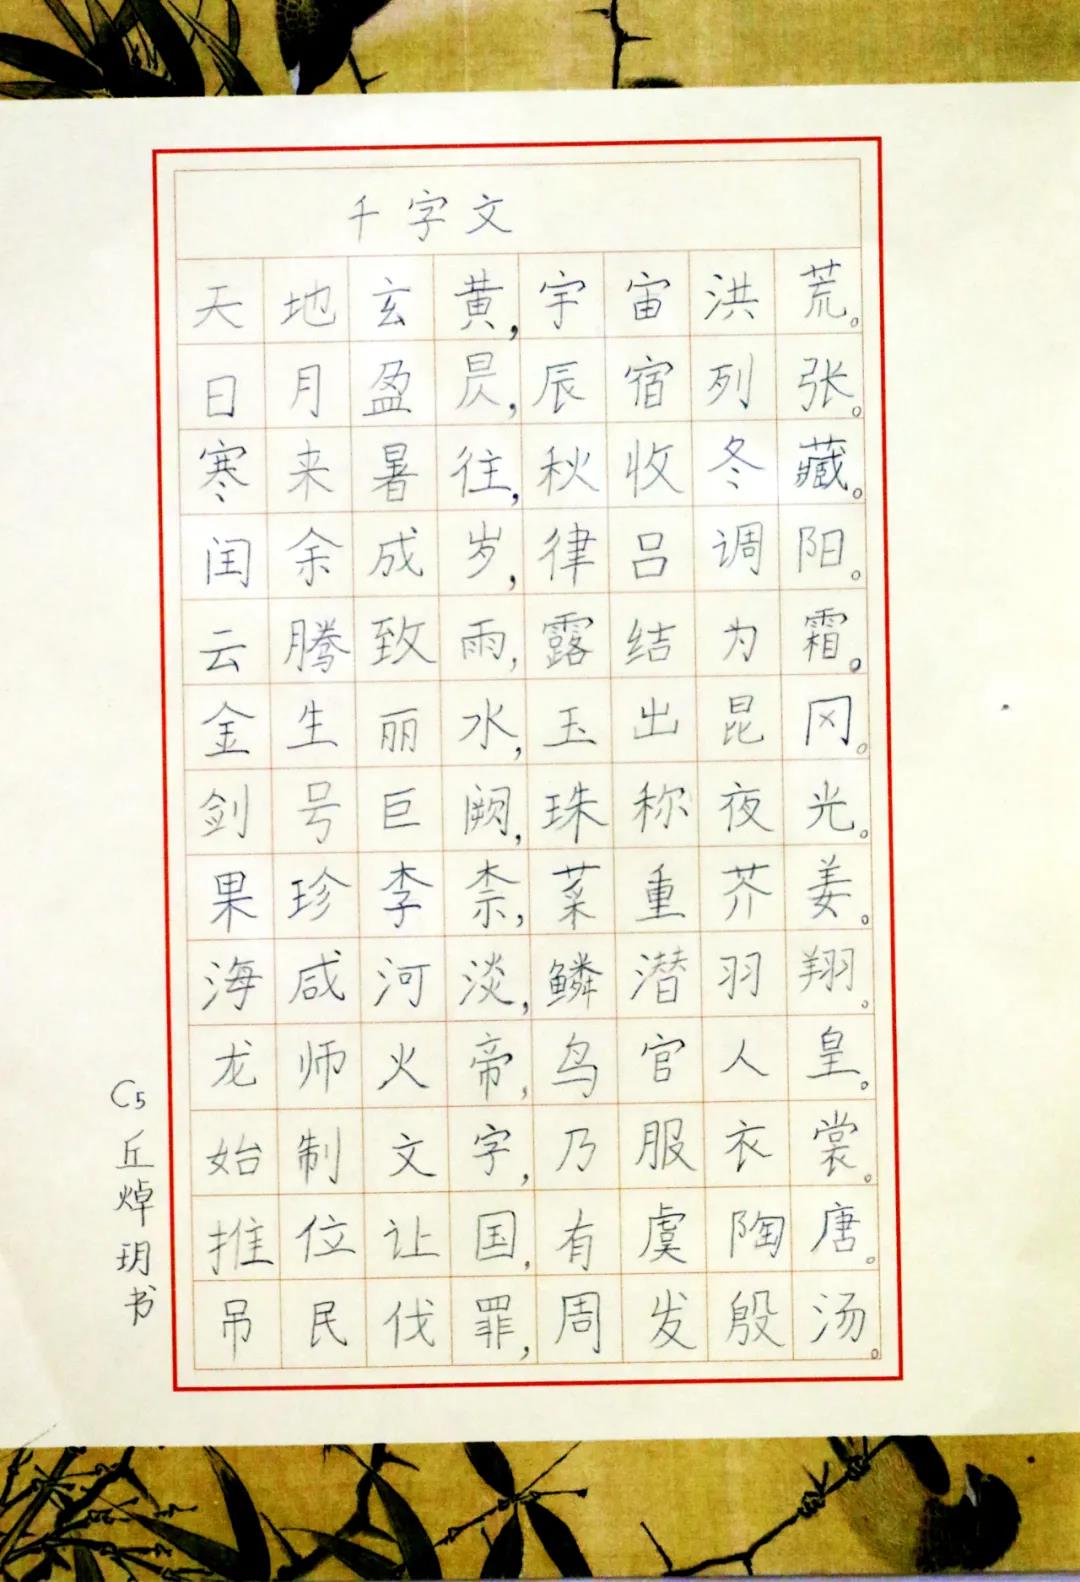 千字文
天地玄黄，宇宙洪荒。
日月盈昃，辰宿列张。
寒来暑往，秋收冬藏。
闰余成岁，律吕调阳。
云腾致雨，露结为霜。
金生丽水，玉出昆冈。
剑号巨阙，珠称夜光。
果珍李柰，菜重芥姜。
海咸河淡，鳞潜羽翔。
龙师火帝，鸟官人皇。
始制文字，乃服衣裳。
推位让国，有虞陶唐。
吊民伐罪，周发殷汤。
C5丘焯玥书